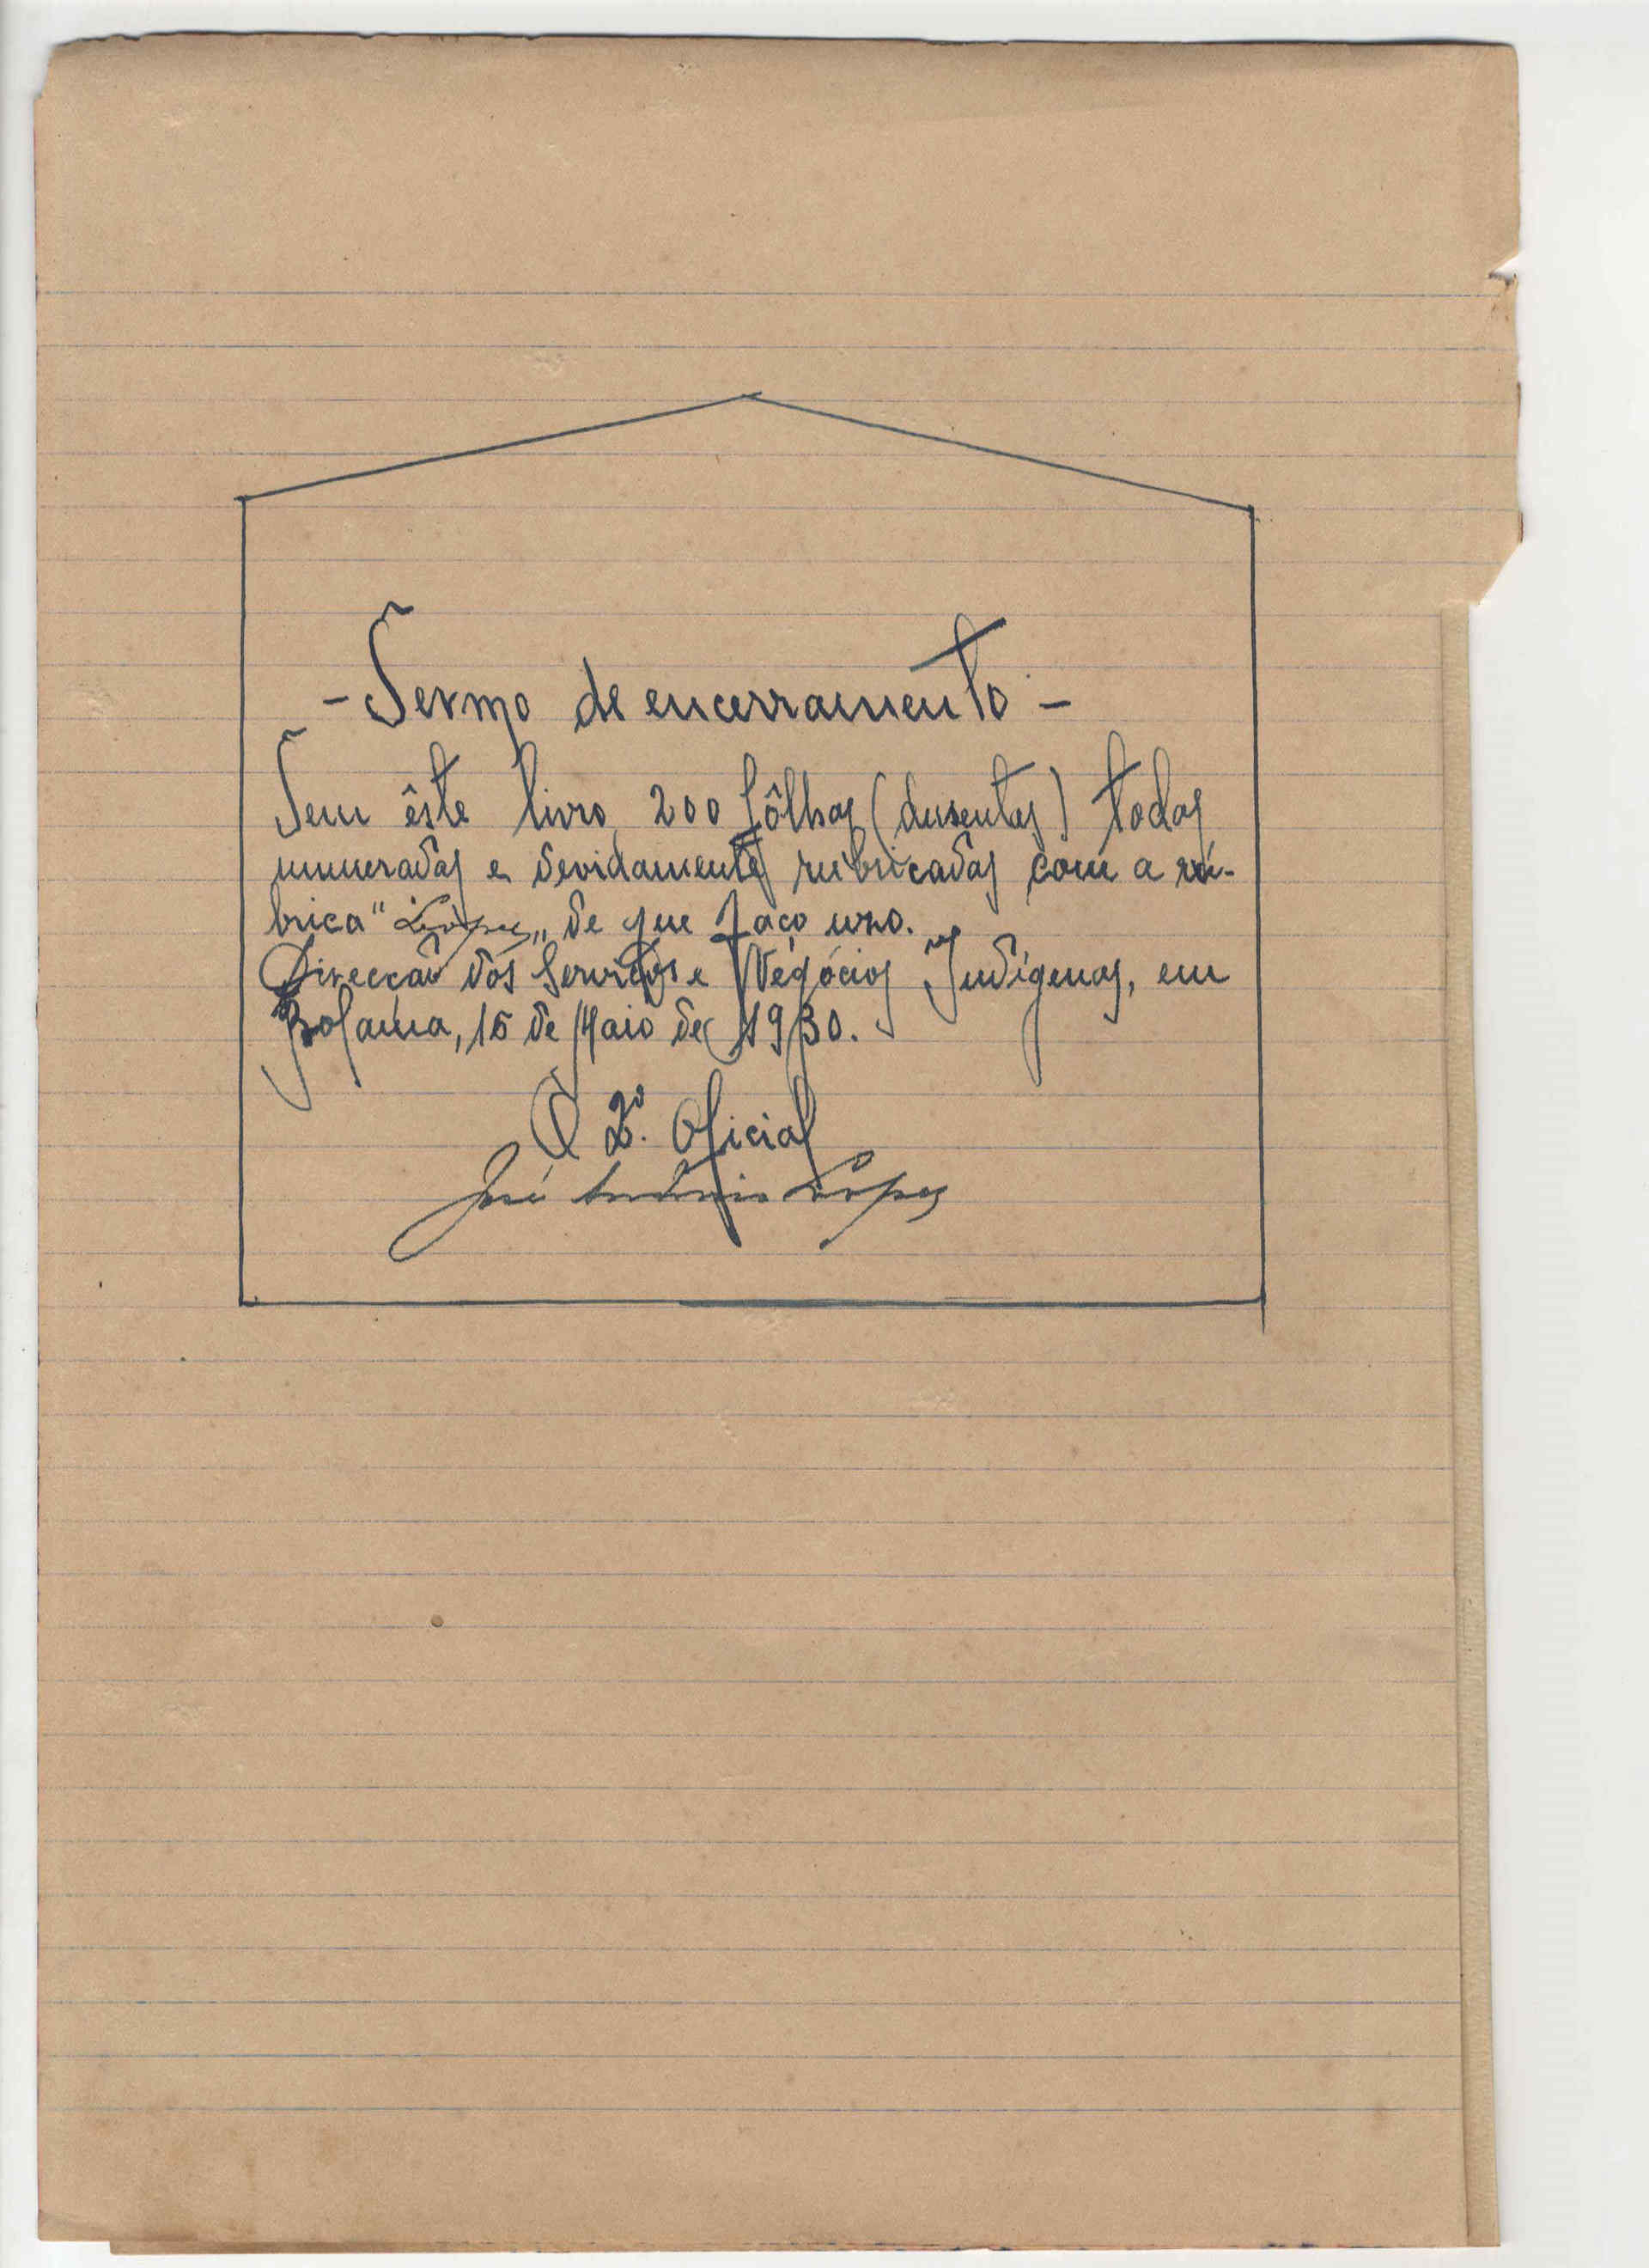 - Termo de encerramento -
Tem êste livro, 200 fôlhas (dusentas) todas
numeradas e devidamente rubricadas com a rú-
brica "Lopes" de que faço uso.
Direcção dos Serviços e Negócios Indígenas, em
Bolama, 15 de Maio de 1930.
O 2º. Oficial
José António Lopes